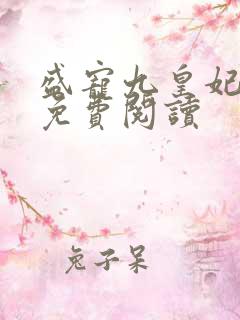 盛寵九皇妃
免費閱讀
兔子呆